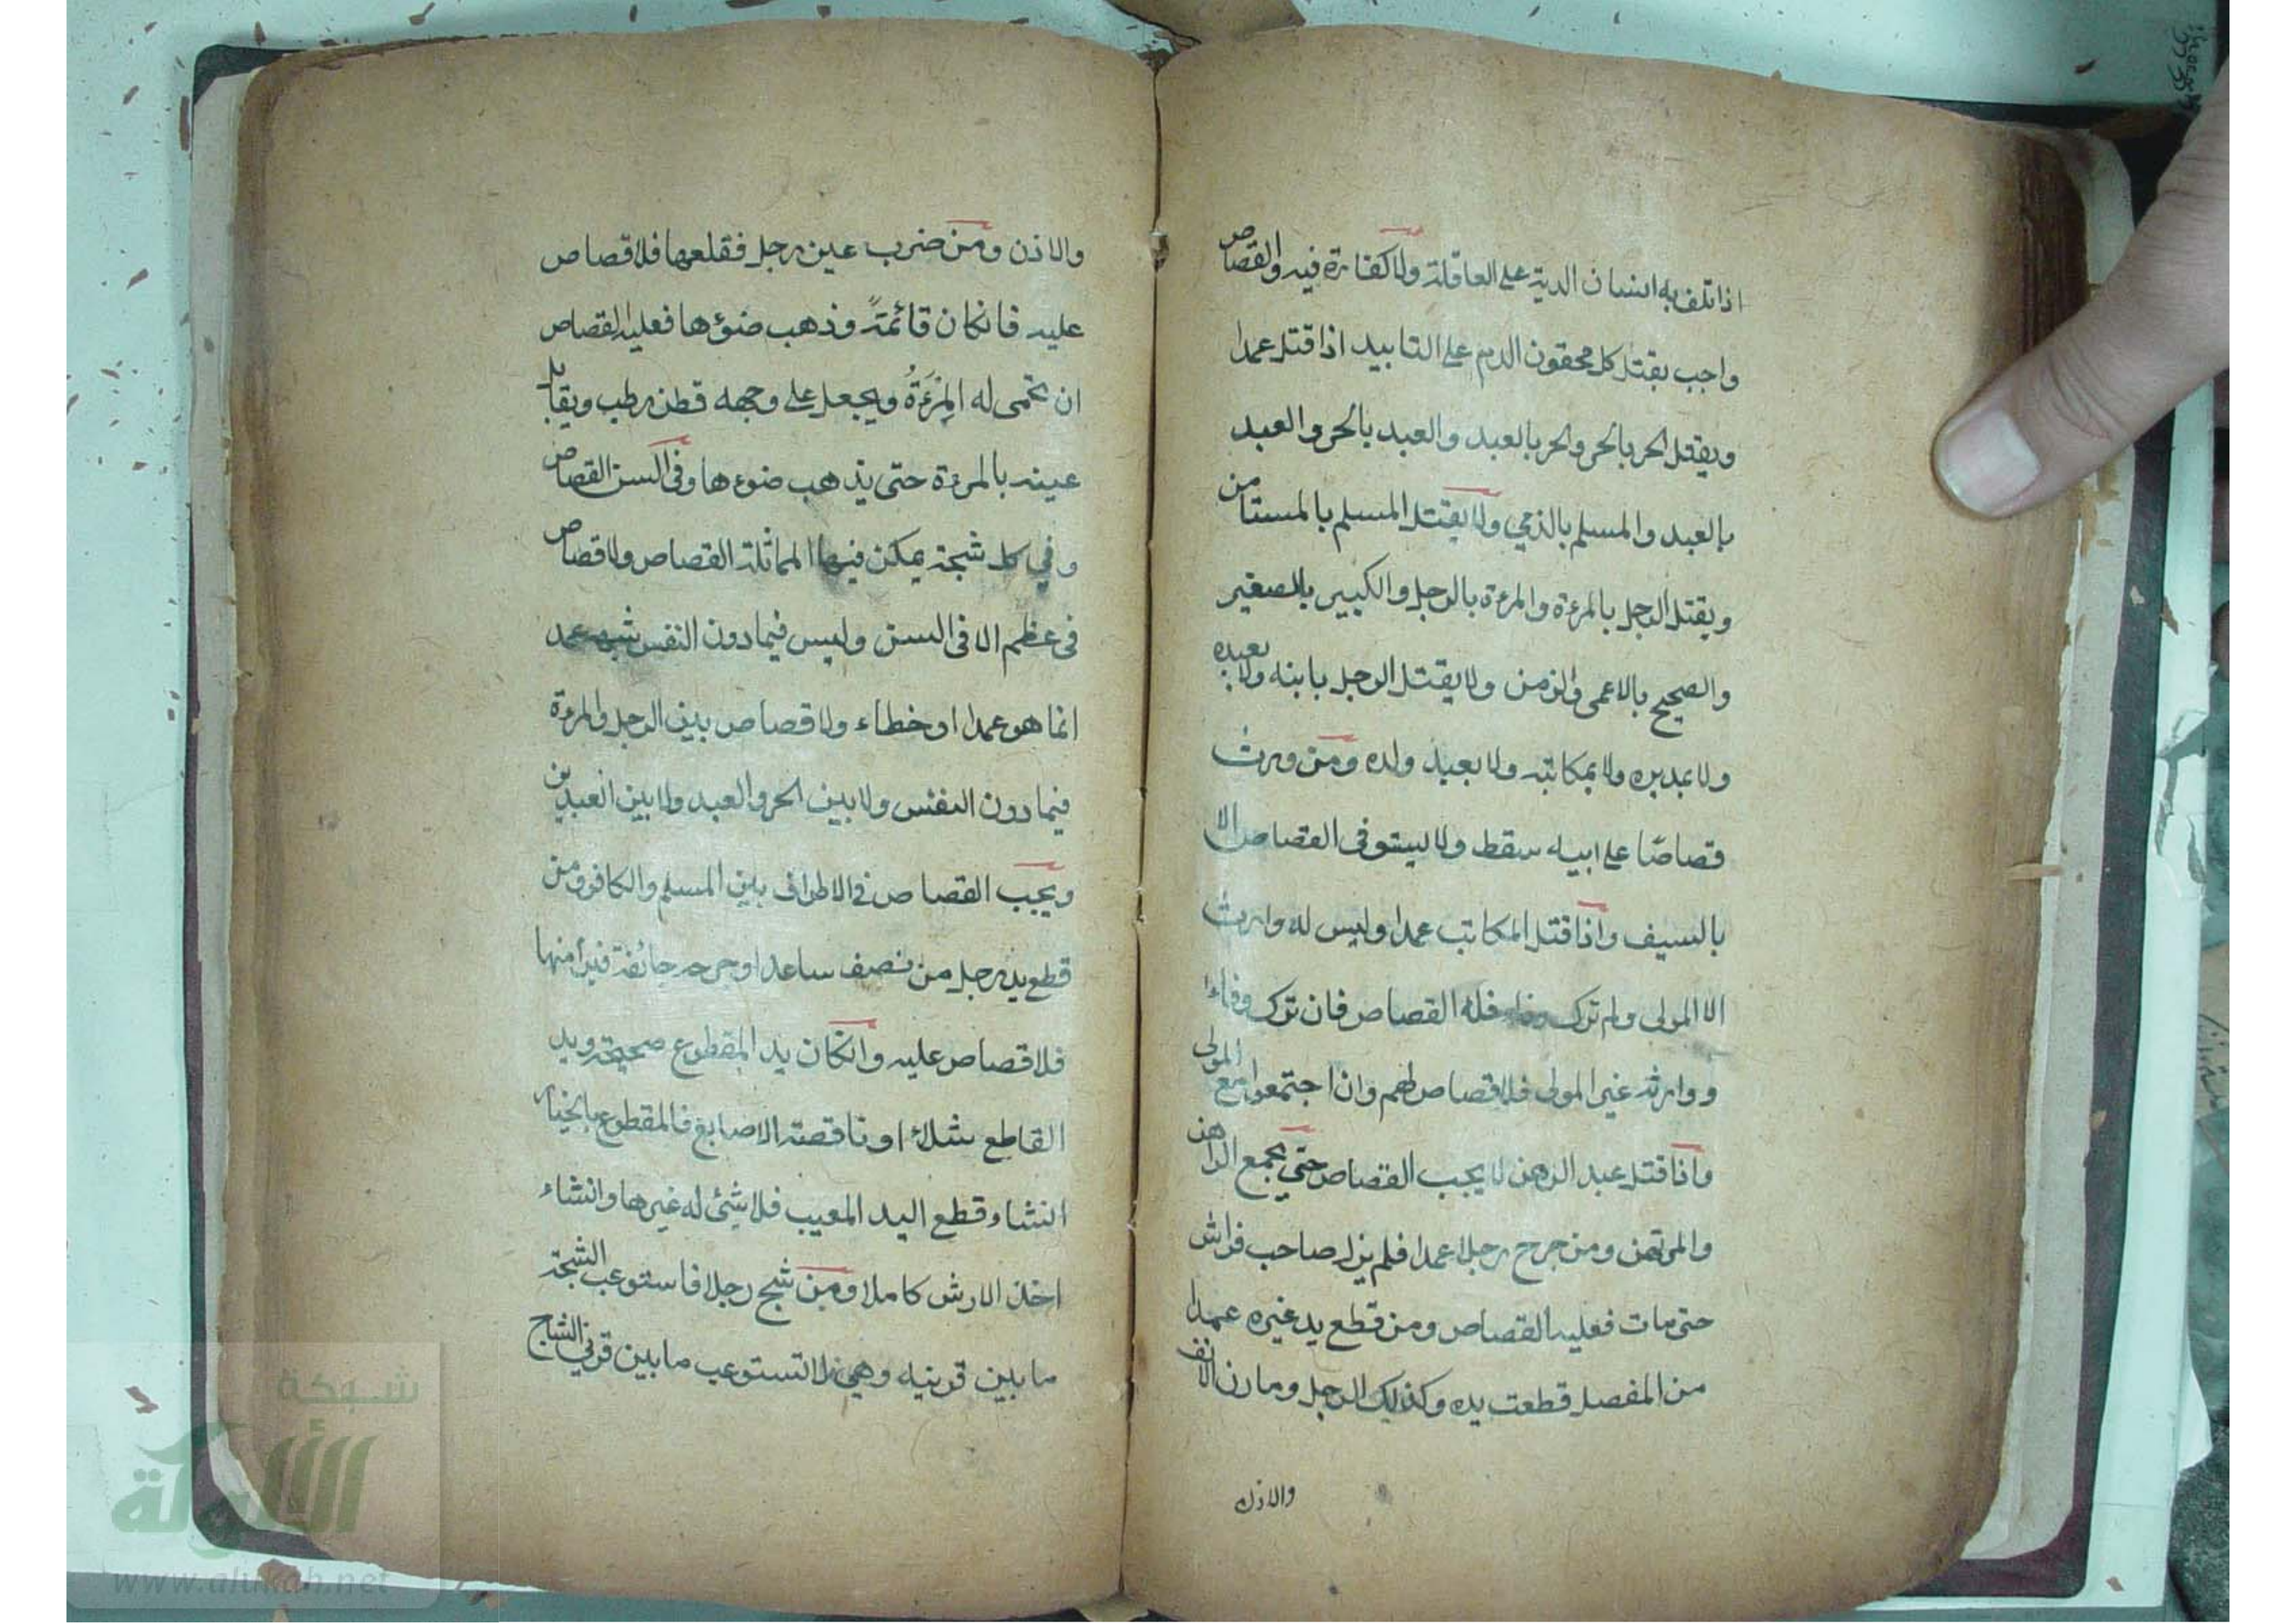 اذا تلف به انسان الدية على العاقلة ولا كفارة فيه والقصاص
واجب بقتل كل محقون الدم على التابيد اذا قتل عمدا
ويقتل الحر بالحر والحر بالعبد والعبد بالحر والعبد
بالعبد والمسلم بالذمي ولا يقتل المسلم بالمستامن
ويقتل الرجل بالمرءة والمرءة بالرجل والكبير بالصغير
والصحيح بالاعمى والزمن ولا يقتل الرجل بابنه ولا بعبده
ولا بمدبره ولا بمكاتبه ولا بعبد ولده ومن ورث
قصاصًا على ابيه سقط ولا يستوفى القصاص الا
بالسيف واذا قتل المكاتب عمدا وليس له وارث
الا المولى ولم ترك وفاء فله القصاص فان ترك وفاءا
ووارثه غير المولى فلا قصاص لهم وان اجتمعوا مع المولى
واذا قتل عبد الرهن لا يجب القصاص حتى يجمع الراهن
والمرتهن ومن جرح رجلا عمدا فلم يزل صاحب فراش
حتى مات فعليه القصاص ومن قطع يد غيره عمدا
من المفصل قطعت يده وكذلك الرجل ومارن الانف
والاذن
والاذن ومن ضرب عين رجل فقلعها فلا قصاص
عليه فانكان قائمةً وذهب ضوؤها فعليه القصاص
ان تحمى له المِرْءَةُ ويجعل على وجهه قطن رطب ويقابل
عينه بالمرءة حتى يذهب ضوءها وفى السن القصاص
وفي كل شجة يمكن فيها المماثلة القصاص ولا قصاص
فى عظم الا فى السن وليس فيما دون النفس شبه عمد
انما هو عمدا او خطاء ولا قصاص بين الرجل والمرءة
فيما دون النفس ولا بين الحر والعبد ولا بين العبدين
ويجب القصاص فى الاطراف بين المسلم والكافر ومن
قطع يد رجل من نصف ساعد او جرحه جائفة فبرأ منها
فلا قصاص عليه وانكان يد المقطوع صحيحة ويد
القاطع شلاء او ناقصة الاصابع فالمقطوع بالخيار
انشاء قطع اليد المعيب فلا شيئ له غيرها وانشاء
اخذ الارش كاملا ومن شج رجلا فاستوعب الشجة
ما بين قرنيه وهي لا تستوعب ما بين قرني الشاج
شبكة
الألوكة
www.alukah.net